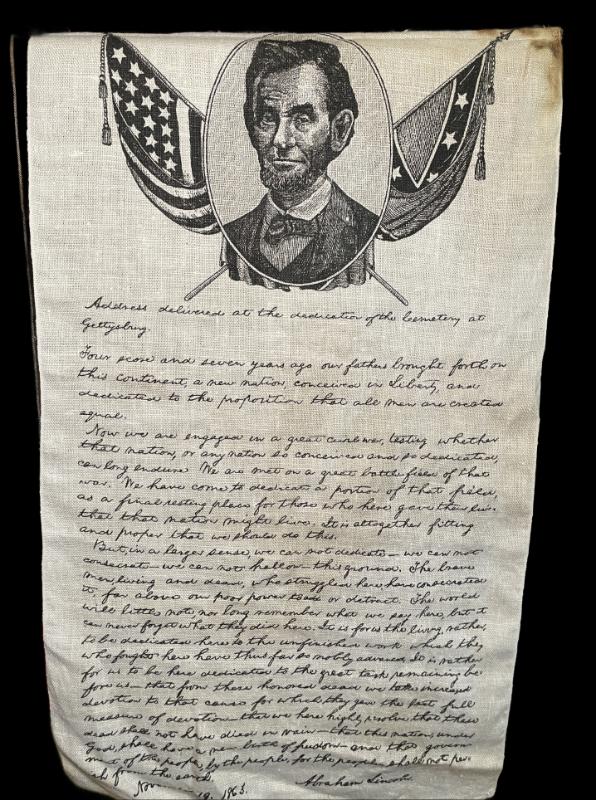 Address delivered at the dedication of the Cemetery at
Gettysburg.
Four score and seven years ago our fathers brought forth on
this continent, a new nation, conceived in Liberty, and
dedicated to the proposition that all men are created
equal.
Now we are engaged in a great civil war, testing whether
that nation, or any nation so conceived and so dedicated,
can long endure. We are met on a great battle field of that
war. We have come to dedicate a portion of that field,
as a final resting place for those who here gave their lives
that that nation might live. It is altogether fitting
and proper that we should do this.
But, in a larger sense, we can not dedicate — we can not
consecrate — we can not hallow — this ground. The brave
men, living and dead, who struggled here, have consecrated
it, far above our poor power to add or detract. The world
will little note, nor long remember what we say here, but it
can never forget what they did here. It is for us the living, rather,
to be dedicated here to the unfinished work which they
who fought here have thus far so nobly advanced. It is rather
for us to be here dedicated to the great task remaining be
fore us — that from these honored dead we take increased
devotion to that cause for which they gave the last full
measure of devotion — that we here highly resolve that these
dead shall not have died in vain — that this nation, under
God, shall have a new birth of freedom — and that govern
ment of the people, by the people, for the people, shall not per
ish from the earth.
Abraham Lincoln
November 19, 1863.